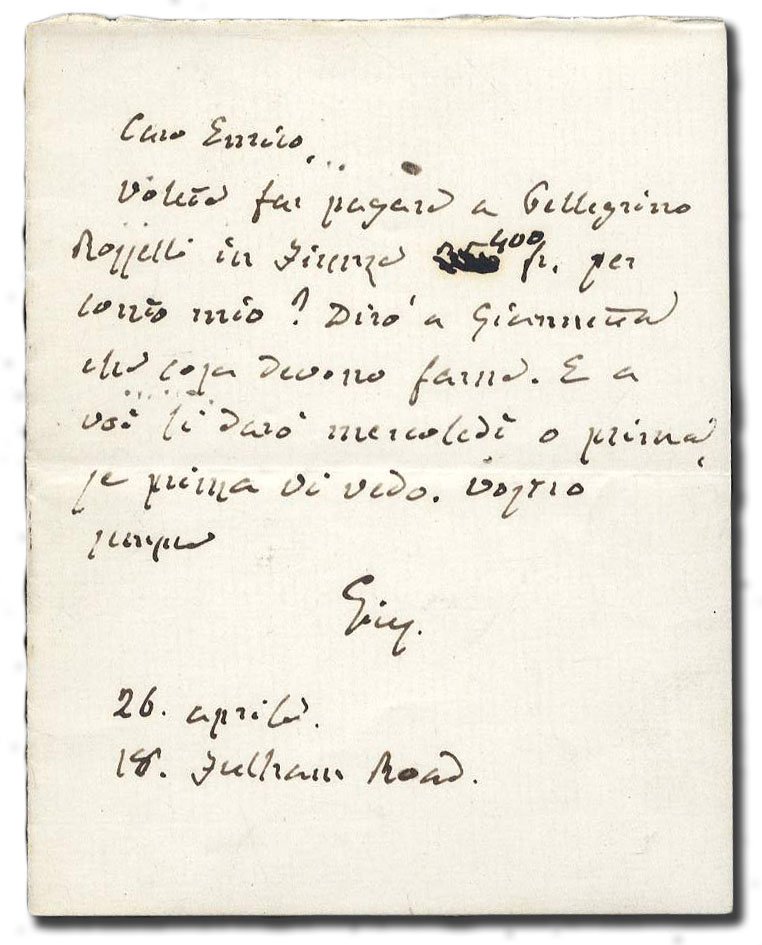 Caro Enrico,
Volete far pagare a Pellegrino
Rosselli in Firenze 400 fr. per
conto mio? Dirò a Giannetta
che cosa devono farne. E a
voi li darò mercoledì o prima,
se prima vi vedo. Vostro
sempre
Gius.
26. aprile.
18. Fulham Road.